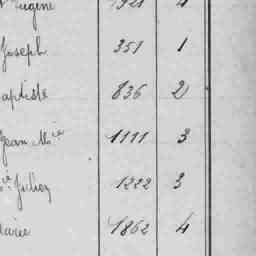 Eugène 1921 4
Joseph 351 1
aptiste 836 2
Jean Mie 1111 3
ie 1222 3
1862 4